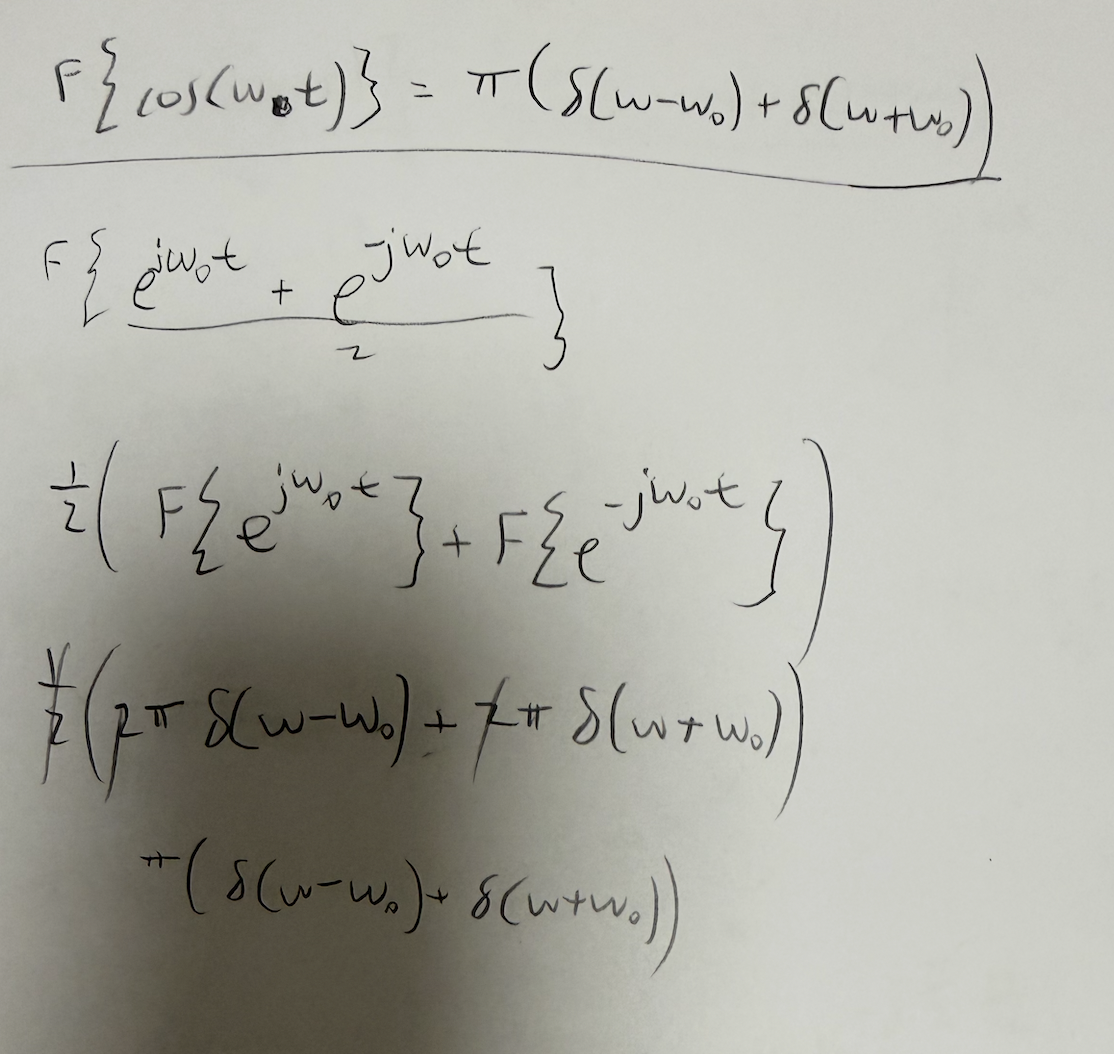 F{cos(w₀t)} = π(δ(w-w₀) + δ(w+w₀))
F{(e^{jw₀t} + e^{-jw₀t})/2}
1/2(F{e^{jw₀t}} + F{e^{-jw₀t}})
1/2(2π δ(w-w₀) + 2π δ(w+w₀))
π(δ(w-w₀) + δ(w+w₀))